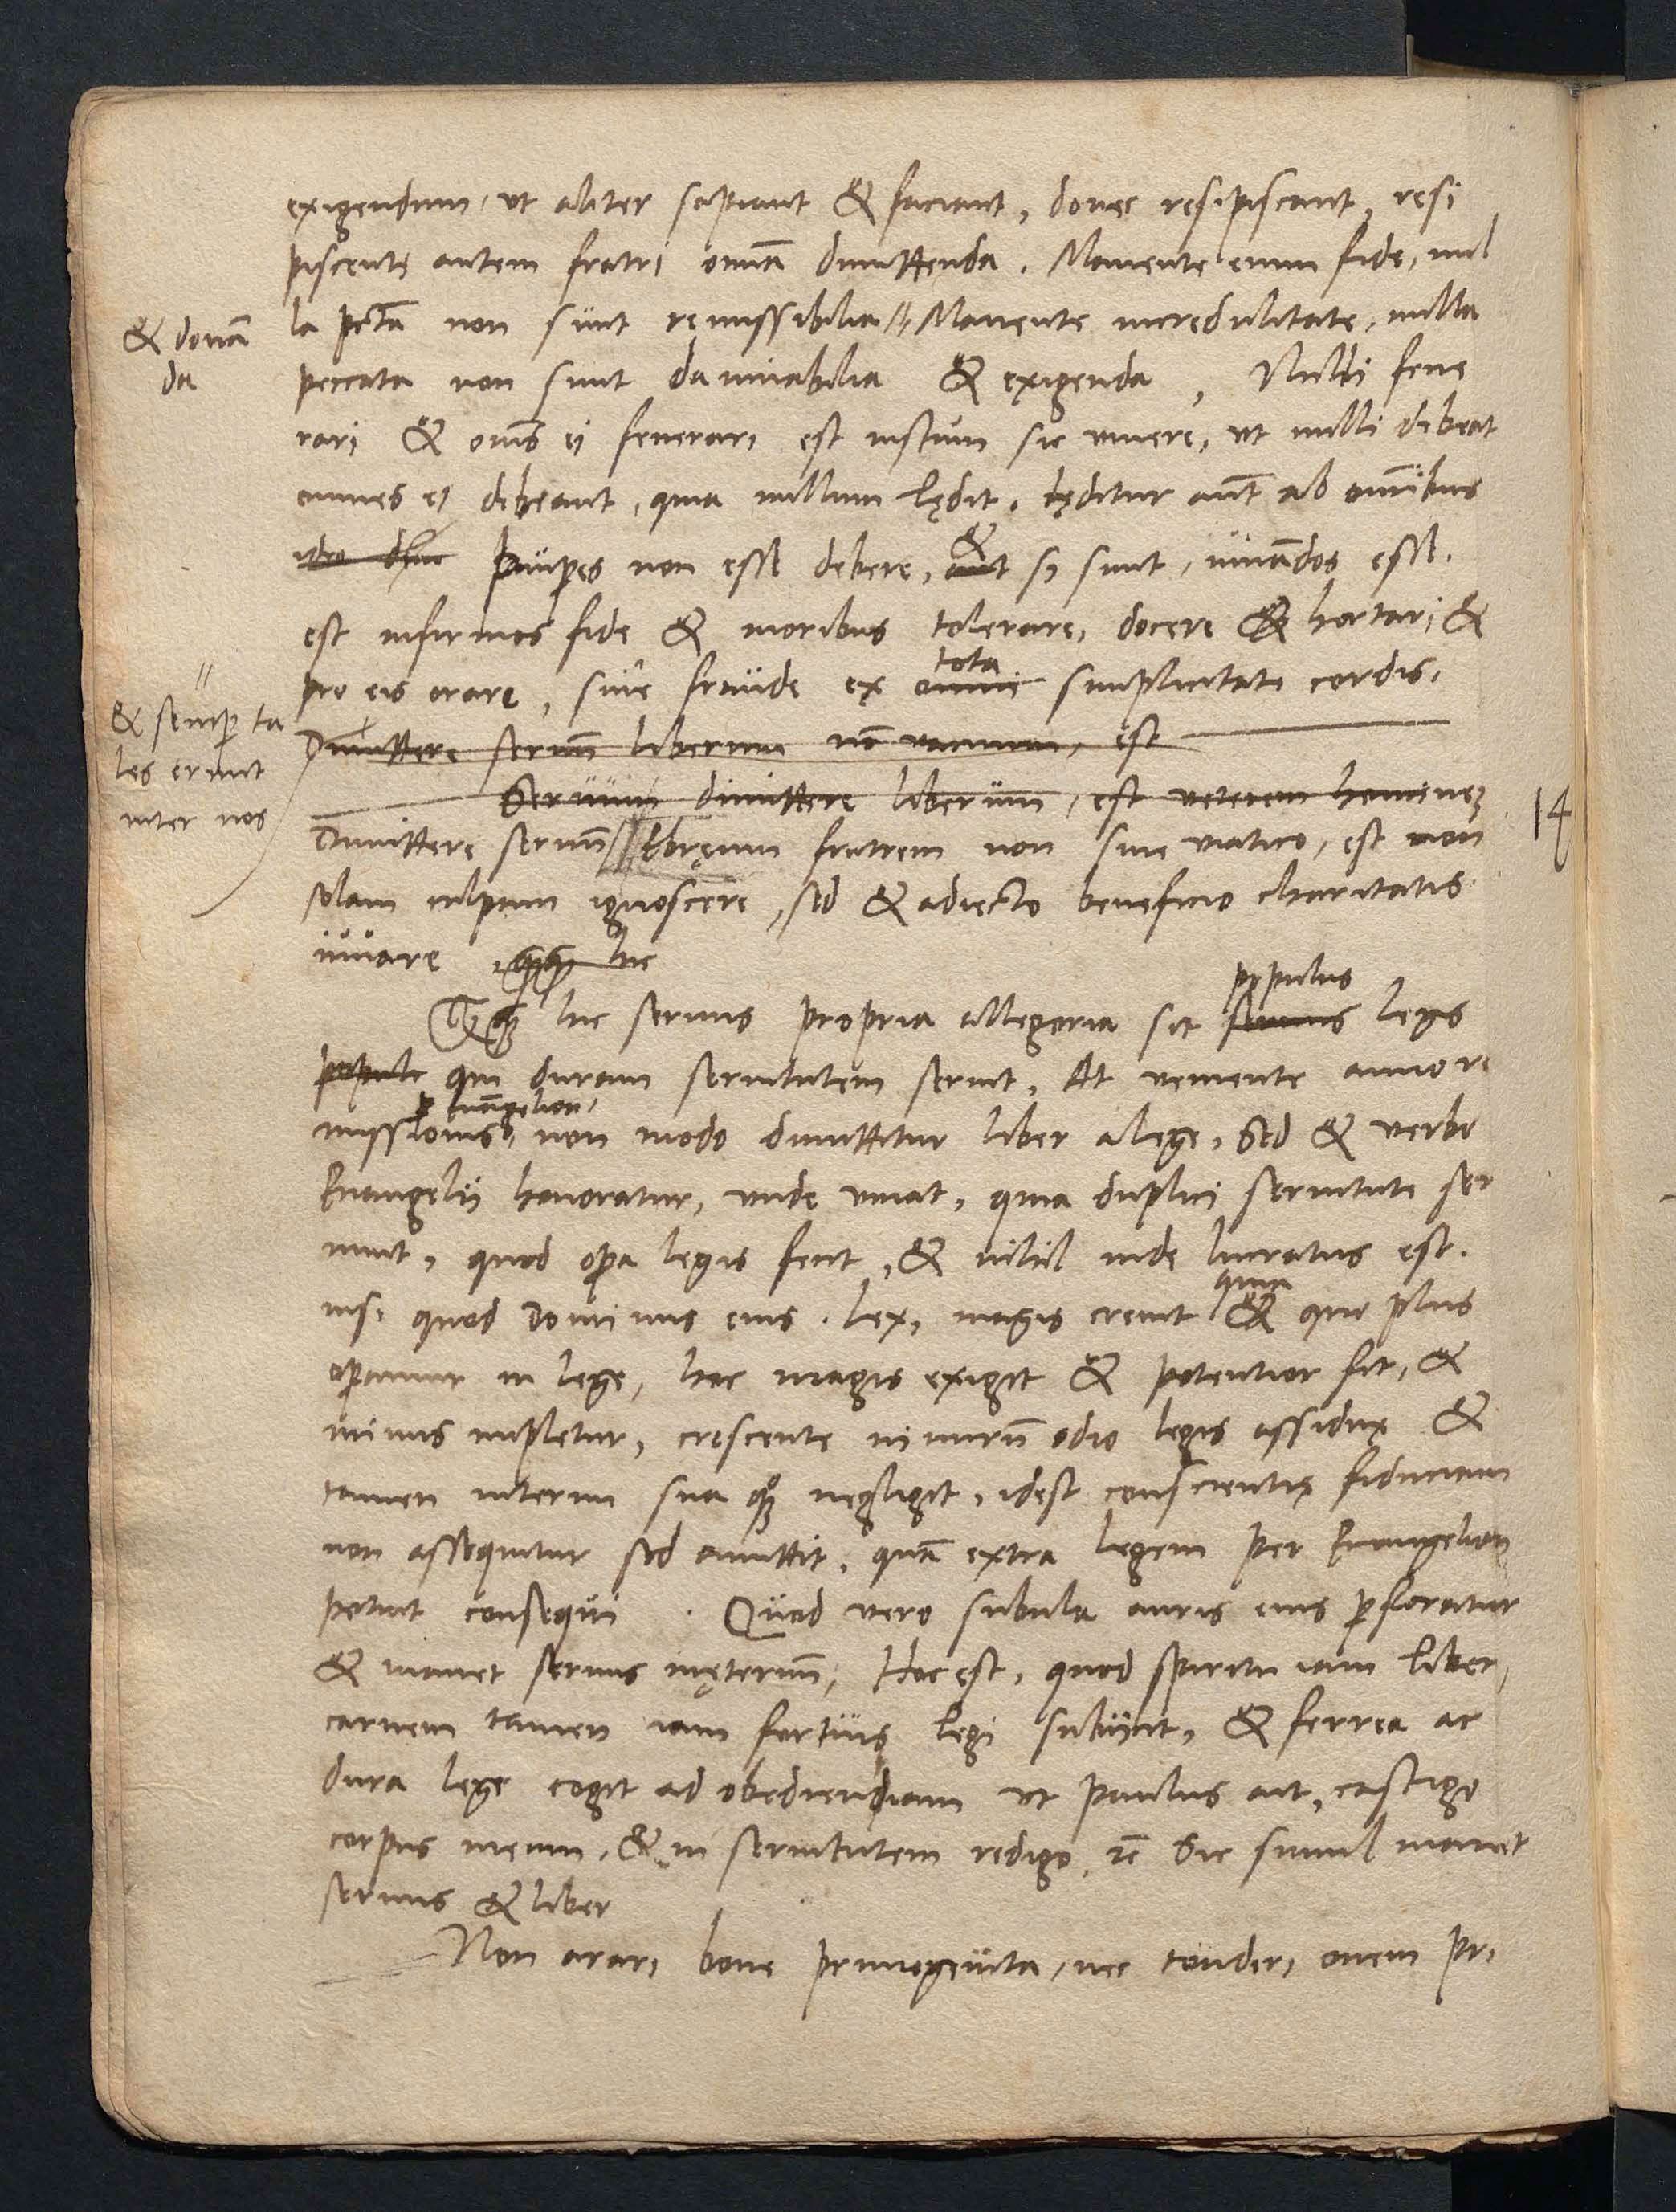 exigendum, ut aliter sapiant & faciant, donec resipiscant, resi
piscente autem fratri omnia dimittenda. Manente enim fide, nul
la pctā non sunt remissibilia // Manente incredulitate, nulla
& donā
da
peccata non sunt damnabilia & exigenda, Nulli fene
rari & oms ei fenerari est iustum sic vivere, ut nulli debeat
omnes ei debeant, quia nullum lędit. lęditur aut ab omnibus
Paupes non esse debere, & si sunt, iuvādos esse.
est infirmos fide & moribus tolerare, docere & hortari, &
pro eis orare, sine fraude ex tota simplicitate cordis,
& semp ta
les erunt
inter nos
Dimittere servū liberum nō vacuum, est
Servum dimittere liberum, est veterem hominē
14
Dimittere servū Ebręum fratrem non sine viatico, est non
solam culpam ignoscere, sed & adiecto beneficio charitatis
iuvare hic
hic servus propria allegoria sit populus legis
populi qui duram servitutem servit, At veniente anno re
missionis p euāgelion, non modo dimittitur liber a lege, Sed & verbo
Evangelii honoratur, unde vivat, quia duplici servitute ser
vivit, quod opa legis fecit, & nihil inde lucratus est.
nisi quod Dominus eius. Lex, magis crevit quia quo plus
opamur in lege, hoc magis exigit & potentior fit, &
minus impletur, crescente nimirū odio legis assidue &
tamen interim sua quoq negligit, idest conscientię fiduciam
non assequitur sed amittit, quā extra legem per Evangelion
potuit consequi. Quod vero subula auris eius pforatur
& manet servus inęternū, Hoc est, quod spiritu iam liber,
carnem tamen iam fortius legi subiicit, & ferrea ac
dura lege cogit ad obediendiam ut Paulus ait, castigo
corpus meum, & in servitutem redigo, rc̄ Sic simul manet
servus & liber
Non arari bove primogenita, nec tonderi ovem pri